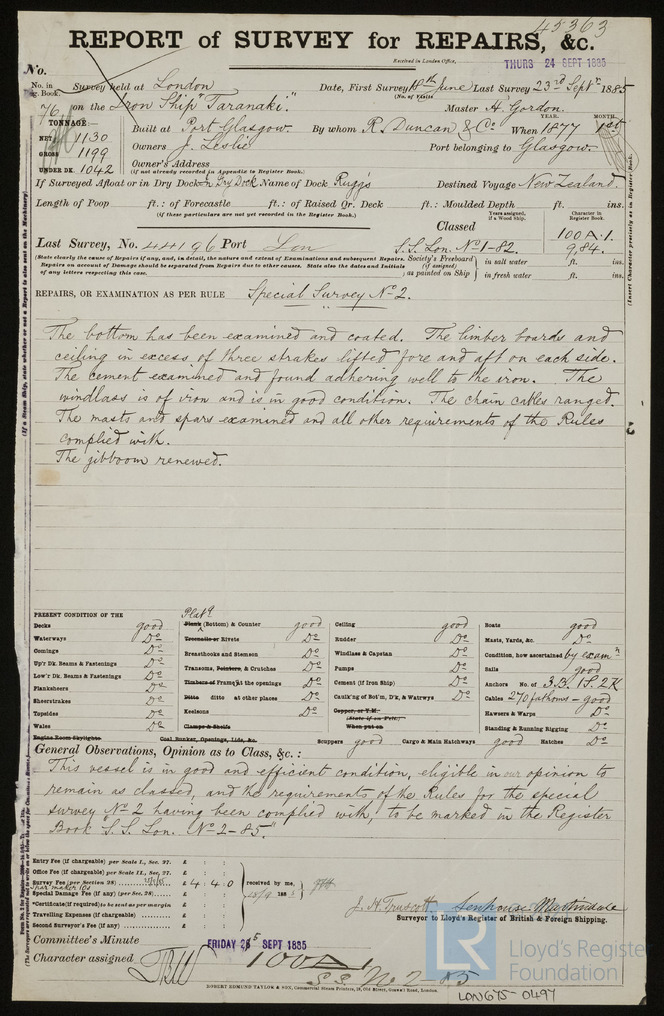 45363
REPORT of SURVEY for REPAIRS, &c.
Received in London Office, THURS 24 SEPT 1885
No.
No. in Reg. Book. Survey held at London Date, First Survey 18th June Last Survey 23rd Septr 1885
(No. of Visits )
76 on the Iron Ship "Taranaki." Master H. Gordon.
TONNAGE: YEAR. MONTH.
NET 1130 Built at Port Glasgow. By whom R. Duncan & Co When 1877 1st
GROSS 1199 Owners J. Leslie Port belonging to Glasgow.
UNDER DK. 1042 Owner's Address
(If not already recorded in Appendix to Register Book.)
If Surveyed Afloat or in Dry Dock In Dry Dock Name of Dock Rugg's Destined Voyage New Zealand.
Length of Poop ft.: of Forecastle ft.: of Raised Qr. Deck ft.: Moulded Depth ft. ins.
(if these particulars are not yet recorded in the Register Book.)
Years assigned, if a Wood Ship. Character in Register Book.
Classed 100A.1.
Last Survey, No. 44196 Port Lon S.S. Lon. No 1-82. 9,84.
(State clearly the Cause of Repairs if any, and, in detail, the nature and extent of Examinations and subsequent Repairs. Repairs on account of Damage should be separated from Repairs due to other causes. State also the dates and Initials of any letters respecting this case.
Society's Freeboard (if assigned) as painted on Ship in salt water ft. ins.
in fresh water ft. ins.
REPAIRS, OR EXAMINATION AS PER RULE Special Survey No 2.
The bottom has been examined and coated. The limber boards and
ceiling in excess of three strakes lifted fore and aft on each side.
The cement examined and found adhering well to the iron. The
windlass is of iron and is in good condition. The chain cables ranged.
The masts and spars examined and all other requirements of the Rules
complied with.
The jibboom renewed.
PRESENT CONDITION OF THE
Decks good
Waterways Do
Comings Do
Up'r Dk. Beams & Fastenings Do
Low'r Dk. Beams & Fastenings Do
Planksheers Do
Sheerstrakes Do
Topsides Do
Wales Do
Engine Room Skylights Coal Bunker, Openings, Lids, &c.
Platg
Plank (Bottom) & Counter good
Treenails or Rivets Do
Breasthooks and Stemson Do
Transoms, Pointers, & Crutches Do
Timbers of Frame at the openings Do
Ditto ditto at other places Do
Keelsons Do
Clamps & Shelfs
Ceiling good
Rudder Do
Windlass & Capstan Do
Pumps Do
Cement (if Iron Ship) Do
Caulk'ng of Bot'm, D'k, & Watrwys Do
Copper, or Y.M.
(State if on Felt.)
When put on
Boats good
Masts, Yards, &c. Do
Condition, how ascertained by examn
Sails good
Anchors No. of 3B. 1S. 2K
Cables 270 fathoms - good
Hawsers & Warps Do
Standing & Running Rigging Do
Scuppers good Cargo & Main Hatchways good Hatches Do
General Observations, Opinion as to Class, &c.:
This vessel is in good and efficient condition, eligible in our opinion to
remain as classed, and the requirements of the Rules for the special
survey No 2 having been complied with, to be marked in the Register
Book "S.S. Lon. No 2-85."
Entry Fee (if chargeable) per Scale I., Sec. 27. £ : :
Office Fee (if chargeable) per Scale II., Sec. 27. £ : :
Survey Fee (per Section 28) £ 4 . 4 . 0
Special Damage Fee (if any) (per Sec. 28) £ : :
*Certificate (if required) to be sent as per margin
Travelling Expenses (if chargeable) £ : :
Second Surveyor's Fee (if any) £ : :
received by me,
J. H. Truscott Senhouse Martindale
Surveyor to Lloyd's Register of British & Foreign Shipping.
Committee's Minute FRIDAY 25 SEPT 1885
Character assigned 100A1
S.S. No 2 85
ROBERT EDMUND TAYLOR & SON, Commercial Steam Printers, 19, Old Street, Goswell Road, London.
LR Lloyd's Register Foundation
LON675-0497